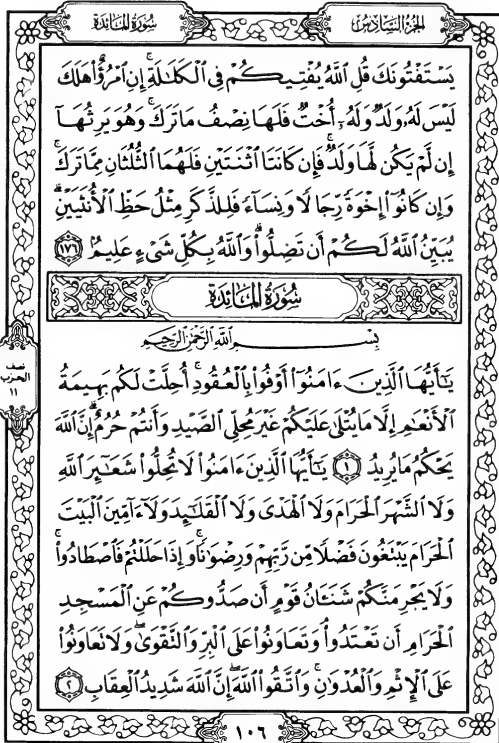 الجزء السادس
سورة المائدة
يَسْتَفْتُونَكَ قُلِ ٱللَّهُ يُفْتِيكُمْ فِى ٱلْكَلَٰلَةِ ۚ إِنِ ٱمْرُؤٌا۟ هَلَكَ
لَيْسَ لَهُۥ وَلَدٌ وَلَهُۥٓ أُخْتٌ فَلَهَا نِصْفُ مَا تَرَكَ ۚ وَهُوَ يَرِثُهَآ
إِن لَّمْ يَكُن لَّهَا وَلَدٌ ۚ فَإِن كَانَتَا ٱثْنَتَيْنِ فَلَهُمَا ٱلثُّلُثَانِ مِمَّا تَرَكَ ۚ
وَإِن كَانُوٓا۟ إِخْوَةً رِّجَالًا وَنِسَآءً فَلِلذَّكَرِ مِثْلُ حَظِّ ٱلْأُنثَيَيْنِ ۗ
يُبَيِّنُ ٱللَّهُ لَكُمْ أَن تَضِلُّوا۟ ۗ وَٱللَّهُ بِكُلِّ شَىْءٍ عَلِيمٌۢ ١٧٦
سورة المائدة
بِسْمِ ٱللَّهِ ٱلرَّحْمَٰنِ ٱلرَّحِيمِ
يَٰٓأَيُّهَا ٱلَّذِينَ ءَامَنُوٓا۟ أَوْفُوا۟ بِٱلْعُقُودِ ۚ أُحِلَّتْ لَكُم بَهِيمَةُ
ٱلْأَنْعَٰمِ إِلَّا مَا يُتْلَىٰ عَلَيْكُمْ غَيْرَ مُحِلِّى ٱلصَّيْدِ وَأَنتُمْ حُرُمٌ ۗ إِنَّ ٱللَّهَ
يَحْكُمُ مَا يُرِيدُ ١ يَٰٓأَيُّهَا ٱلَّذِينَ ءَامَنُوا۟ لَا تُحِلُّوا۟ شَعَٰٓئِرَ ٱللَّهِ
وَلَا ٱلشَّهْرَ ٱلْحَرَامَ وَلَا ٱلْهَدْىَ وَلَا ٱلْقَلَٰٓئِدَ وَلَآ ءَآمِّينَ ٱلْبَيْتَ
ٱلْحَرَامَ يَبْتَغُونَ فَضْلًا مِّن رَّبِّهِمْ وَرِضْوَٰنًا ۚ وَإِذَا حَلَلْتُمْ فَٱصْطَادُوا۟ ۚ
وَلَا يَجْرِمَنَّكُمْ شَنَـَٔانُ قَوْمٍ أَن صَدُّوكُمْ عَنِ ٱلْمَسْجِدِ
ٱلْحَرَامِ أَن تَعْتَدُوا۟ ۘ وَتَعَاوَنُوا۟ عَلَى ٱلْبِرِّ وَٱلتَّقْوَىٰ ۖ وَلَا تَعَاوَنُوا۟
عَلَى ٱلْإِثْمِ وَٱلْعُدْوَٰنِ ۚ وَٱتَّقُوا۟ ٱللَّهَ ۖ إِنَّ ٱللَّهَ شَدِيدُ ٱلْعِقَابِ ٢
نصف
الحزب
١١
١٠٦